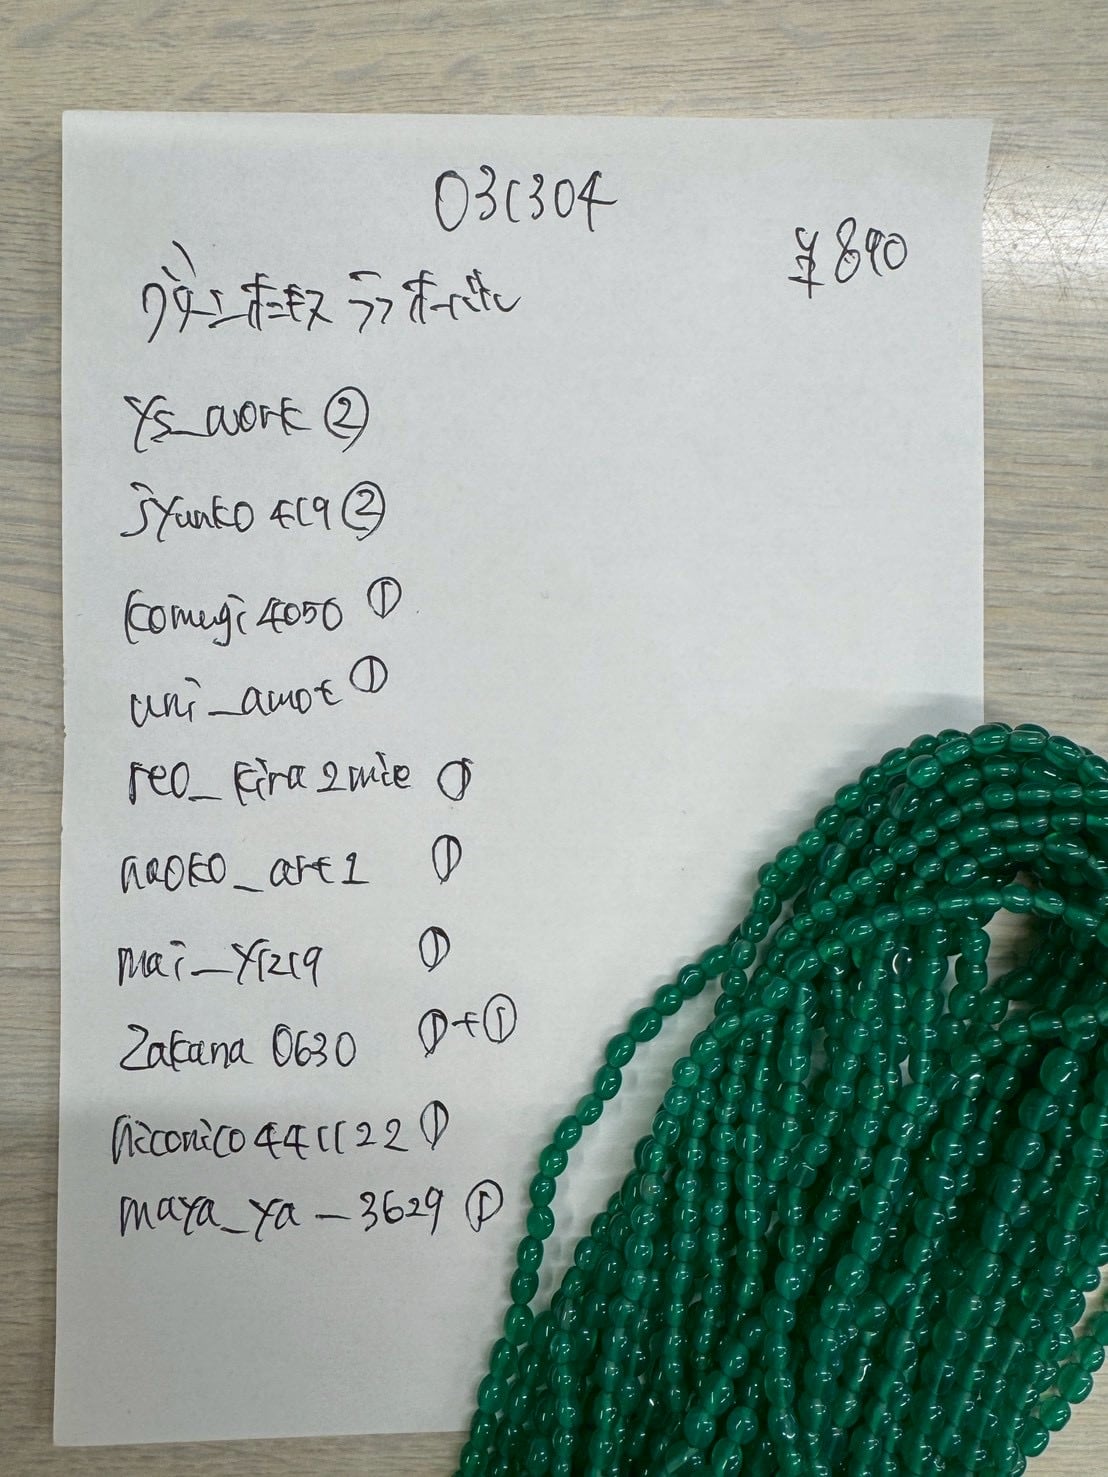 03C304
¥890
ys_work ②
jyunko419 ②
komugi4050 ①
uni_amot ①
reo_kira2mie ①
naoko_art1 ①
mai_y1219 ①
Zakana0630 ①+①
niconico441122 ①
maya_ya_3629 ①